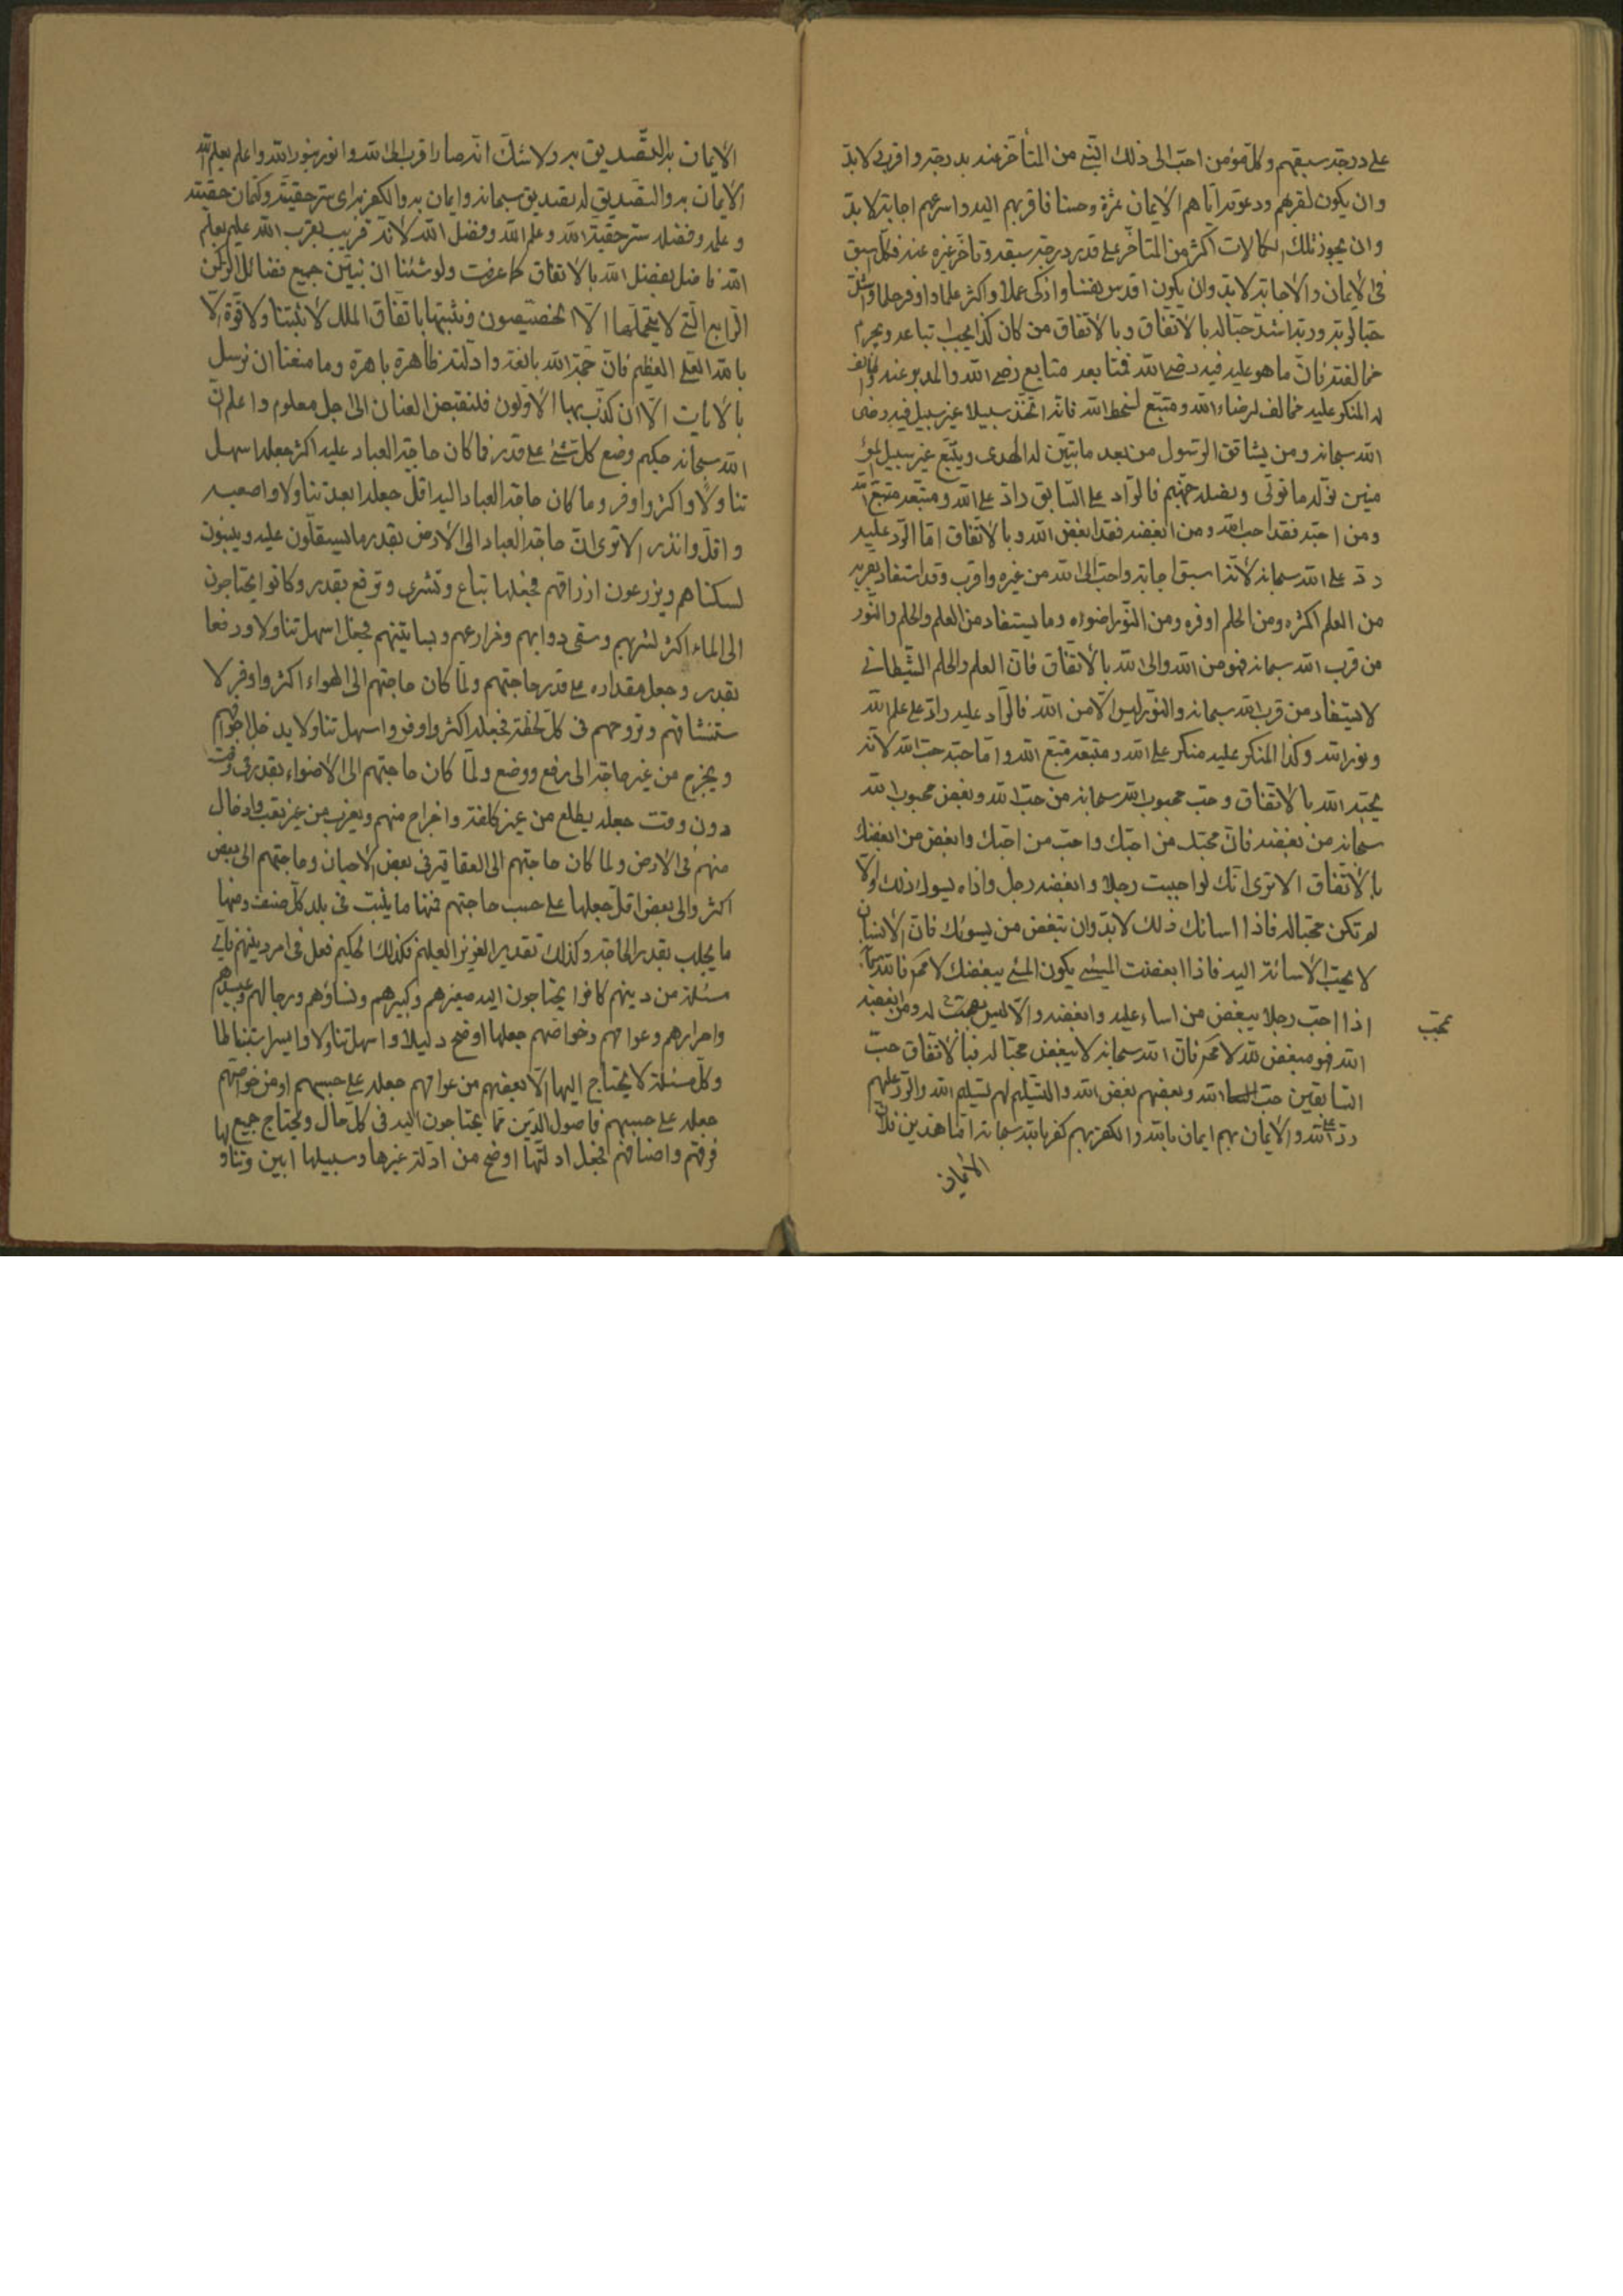 على درجة سبقهم وكل مؤمن احب الى ذلك النبي من المتأخر عنه بدرجة واقرب لابد
وان يكون لقربهم ودعوته اياهم الايمان ثمرة وحسنا فاقربهم اليه واسرعهم اجابة لابد
وان يحوز تلك الكمالات اكثر من المتأخر على قدر درجة سبقه وتأخر غيره عنه فكل اسبق
في الايمان والاجابة لابد وان يكون اقدس نفسا وازكى عملا واكثر علما واوفر حلما واشد
حبا لربه وربه اشد حبا له بالاتفاق وبالاتفاق من كان كذا يجب اتباعه ويحرم
مخالفته فان ما هو عليه فيه رضى الله فمتابعه متابع رضى الله والمدبر عنه والمخالف
له المنكر عليه مخالف لرضاء الله ومتبع لسخط الله فانه اتخذ سبيلا غير سبيل فيه رضى
الله سبحانه ومن يشاقق الرسول من بعد ما تبين له الهدى ويتبع غير سبيل المؤ
منين نوله ما تولى ونصله جهنم فالراد على السابق راد على الله ومتبعه متبع الله
ومن احبه فقد احب الله ومن ابغضه فقد ابغض الله وبالاتفاق اما الرد عليه
رد على الله سبحانه لانه اسبق اجابة واحب الى الله من غيره واقرب وقد استفاد بقربه
من العلم اكثره ومن الحلم اوفره ومن النور اضوءه وما يستفاد من العلم والحلم والنور
من قرب الله سبحانه فهو من الله والى الله بالاتفاق فان العلم والحلم الشيطاني
لا يستفاد من قرب الله سبحانه والنور ليس الا من الله فالراد عليه راد على علم الله
ونور الله وكذا المنكر عليه منكر على الله ومتبعه متبع الله واما حبه حب الله لانه
يحبه الله بالاتفاق وحب محبوب الله سبحانه من حب الله وبغض محبوب الله
سبحانه من بغضه فان محبك من احبك واحب من احبك وابغض من ابغضك
بالاتفاق الا ترى انك لو احببت رجلا وابغضه رجل واذاه يسوءك ذلك والا
لم تكن محبا له فاذا اساءك ذلك لابد وان تبغض من يسوءك فان الانسان
لا يحب الاسائة اليه فاذا ابغضت المسئ يكون المسئ يبغضك لا محة فالله سبحانه
اذا احب رجلا يبغض من اساء عليه وابغضه والا ليس بمحب له ومن ابغضه
يحب
الله فهو مبغض لله لا محة فان الله سبحانه لا يبغض محبا له فبالاتفاق حب
السابقين حب الله وبغضهم بغض الله والتسليم لهم تسليم الله والرد عليهم
رد على الله والايمان بهم ايمان بالله والكفر بهم كفر بالله سبحانه اما هذين فلان
الايمان
الايمان به التصديق به ولا شك انه صار اقرب الى الله وانور بنور الله واعلم بعلم الله
الايمان به والتصديق له تصديق سبحانه وايمان به والكفر به اى ستر حقيته وكتمان حقيته
وعلمه وفضله ستر حقية الله وعلم الله وفضل الله لانه قريب بقرب الله عليم بعلم
الله فاضل بفضل الله بالاتفاق كما عرفت ولو شئنا ان نبين جميع فضائل الركن
الرابع التي لا يتحملها الا الخصيصون ونثبتها باتفاق الملل لاثبتنا ولا قوة الا
بالله العلي العظيم فان حجة الله بالغة وادلته ظاهرة باهرة وما منعنا ان نرسل
بالايات الا ان كذب بها الاولون فلنقبض العنان الى اجل معلوم واعلم ان
الله سبحانه حكيم وضع كل شئ على قدر فما كان حاجة العباد عليه اكثر جعله اسهل
تناولا واكثر واوفر وما كان حاجة العباد اليه اقل جعله ابعد تناولا واصعب
واقل وانذر الا ترى ان حاجة العباد الى الارض بقدر ما يستقلون عليه ويبنون
لسكناهم ويزرعون ارزاقهم فجعلها تباع وتشرى وترفع بقدر وكانوا يحتاجون
الى الماء اكثر لشربهم وسقي دوابهم ومزارعهم وبساتينهم فجعل اسهل تناولا ورفعا
بقدر وجعل مقداره على قدر حاجتهم ولما كان حاجتهم الى الهواء اكثر واوفر لا
ستنشاقهم وتروحهم في كل لحظة فجعله اكثر واوفر واسهل تناولا يدخل اجوافهم
ويخرج من غير حاجة الى رفع ووضع ولما كان حاجتهم الى الاضواء بقدر في وقت
دون وقت جعله يطلع من غير كلفة واخراج منهم ويغرب من غير تعب وادخال
منهم في الارض ولما كان حاجتهم الى العقاقير في بعض الاحيان وحاجتهم الى بعض
اكثر والى بعض اقل جعلها على حسب حاجتهم فمنها ما ينبت في بلد كل صنف ومنها
ما يجلب بقدر الحاجة وكذلك تقدير العزيز العليم فكذلك الحكيم فعل في امر دينهم فاي
مسئلة من دينهم كانوا يحتاجون اليه صغيرهم وكبيرهم ونساؤهم ورجالهم وعبيدهم
واحرارهم وعوامهم وخواصهم جعلها اوضح دليلا واسهل تناولا وايسر استنباطا
وكل مسئلة لا يحتاج اليها الا بعضهم من عوامهم جعله على حسبهم او من خواصهم
جعله على حسبهم فاصول الدين مما يحتاجون اليه في كل حال ويحتاج جميع
فرقهم واصنافهم فجعل ادلتها اوضح من ادلة غيرها وسبيلها ابين وتناو لها